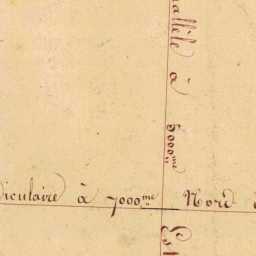 allèle à 6000me
diculaire à 7000me Nord